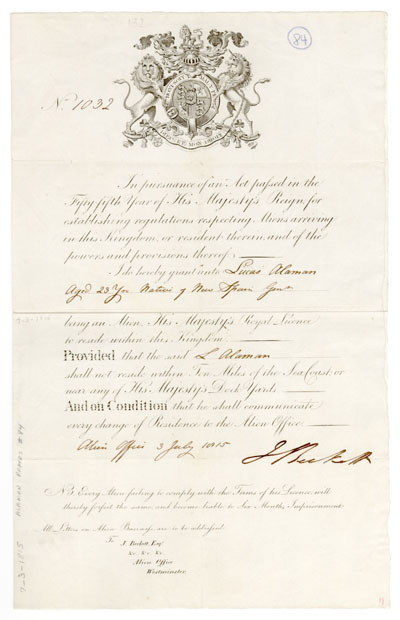 84
No. 1032
DIEU ET MON DROIT
In pursuance of an Act passed in the
Fifty fifth Year of His Majesty's Reign, for
establishing regulations respecting Aliens arriving
in this Kingdom, or resident therein, and of the
powers and provisions thereof;
I do hereby grant unto Lucas Alaman
Aged 23 Yrs Native of New Spain Gent
7-3-1815
being an Alien, His Majesty's Royal Licence
to reside within this Kingdom.
Provided that the said L Alaman
shall not reside within Ten Miles of the Sea Coast or
near any of His Majesty's Dock Yards.
And on Condition that he shall communicate
every change of Residence to the Alien Office.
Alien Office 3 July 1815
J Beckett
NB. Every Alien failing to comply with the Terms of his Licence, will
thereby forfeit the same, and become liable to Six Months, Imprisonment.
All Letters on Alien Business are to be addressed
To J. Beckett Esqr
&c. &c. &c.
Alien Office
Westminster
7-3-1815